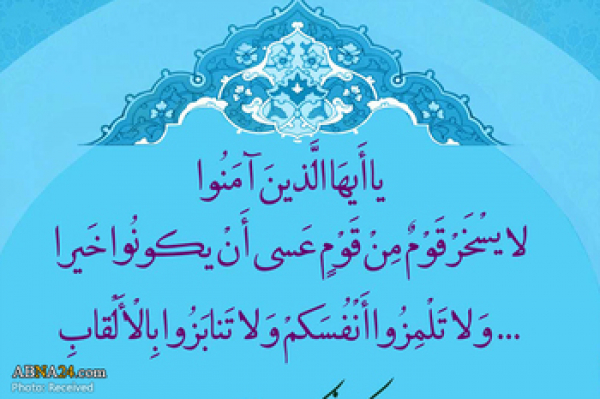 يا أَيهَا الَّذينَ آمَنُوا
لا يسْخَرْ قَوْمٌ مِنْ قَوْمٍ عَسى أَنْ يكونُوا خَيرا
... وَ لا تَلْمِزُوا أَنْفُسَكمْ وَ لا تَنابَزُوا بِالْأَلْقابِ
ABNA24.com
Photo: Received